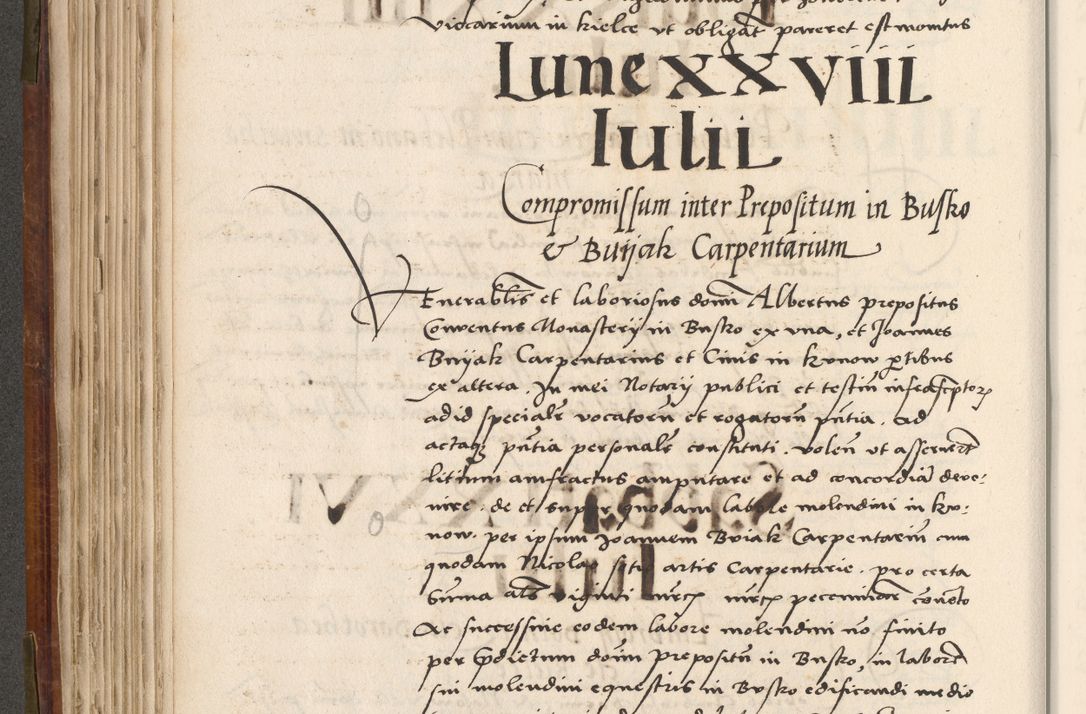 Viccarium in kielce vt obligat pareret est monitus
Lune XXVIII
Iulii
Compromissum inter Prepositum in Busko
& Buijak Carpentarium
VEnerablis et laboriosus domni Albertus prepositus
Conventus Monasterij in Busko ex vna, et Joannes
Buijak Carpentarius et Civis in kxnow ptibus
ex altera. In mei Notarij publici et testium infrascptorz
ad id specialr vocatorum et rogatorum pntia. ad
actaqz pntia personalr constituti. volen vt asseruert
litium amfractus amputare et ad concordia deve-
nire. de et super quodam labore molendini in kxi-
now. per ipsum Joannem Bviak Carpentarium cum
quodam Nicolao artis Carpentarie. pro certa
Summa als viginti mrcz mrcz pecuniar
Ac successive eodem labore molendini no finito
per pdictum domnum Prepositum in Busko, in labore
sui molendini equestris in Bvsko edificandi medio